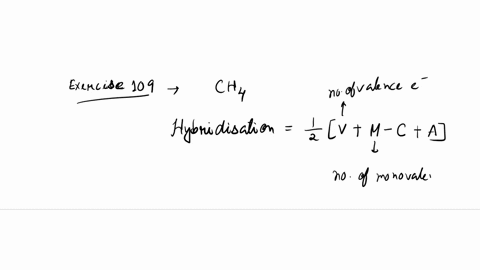 Exercise 109 → CH₄
no. of valence e⁻
Hybridisation = 1/2 [V + M - C + A]
no. of monovale